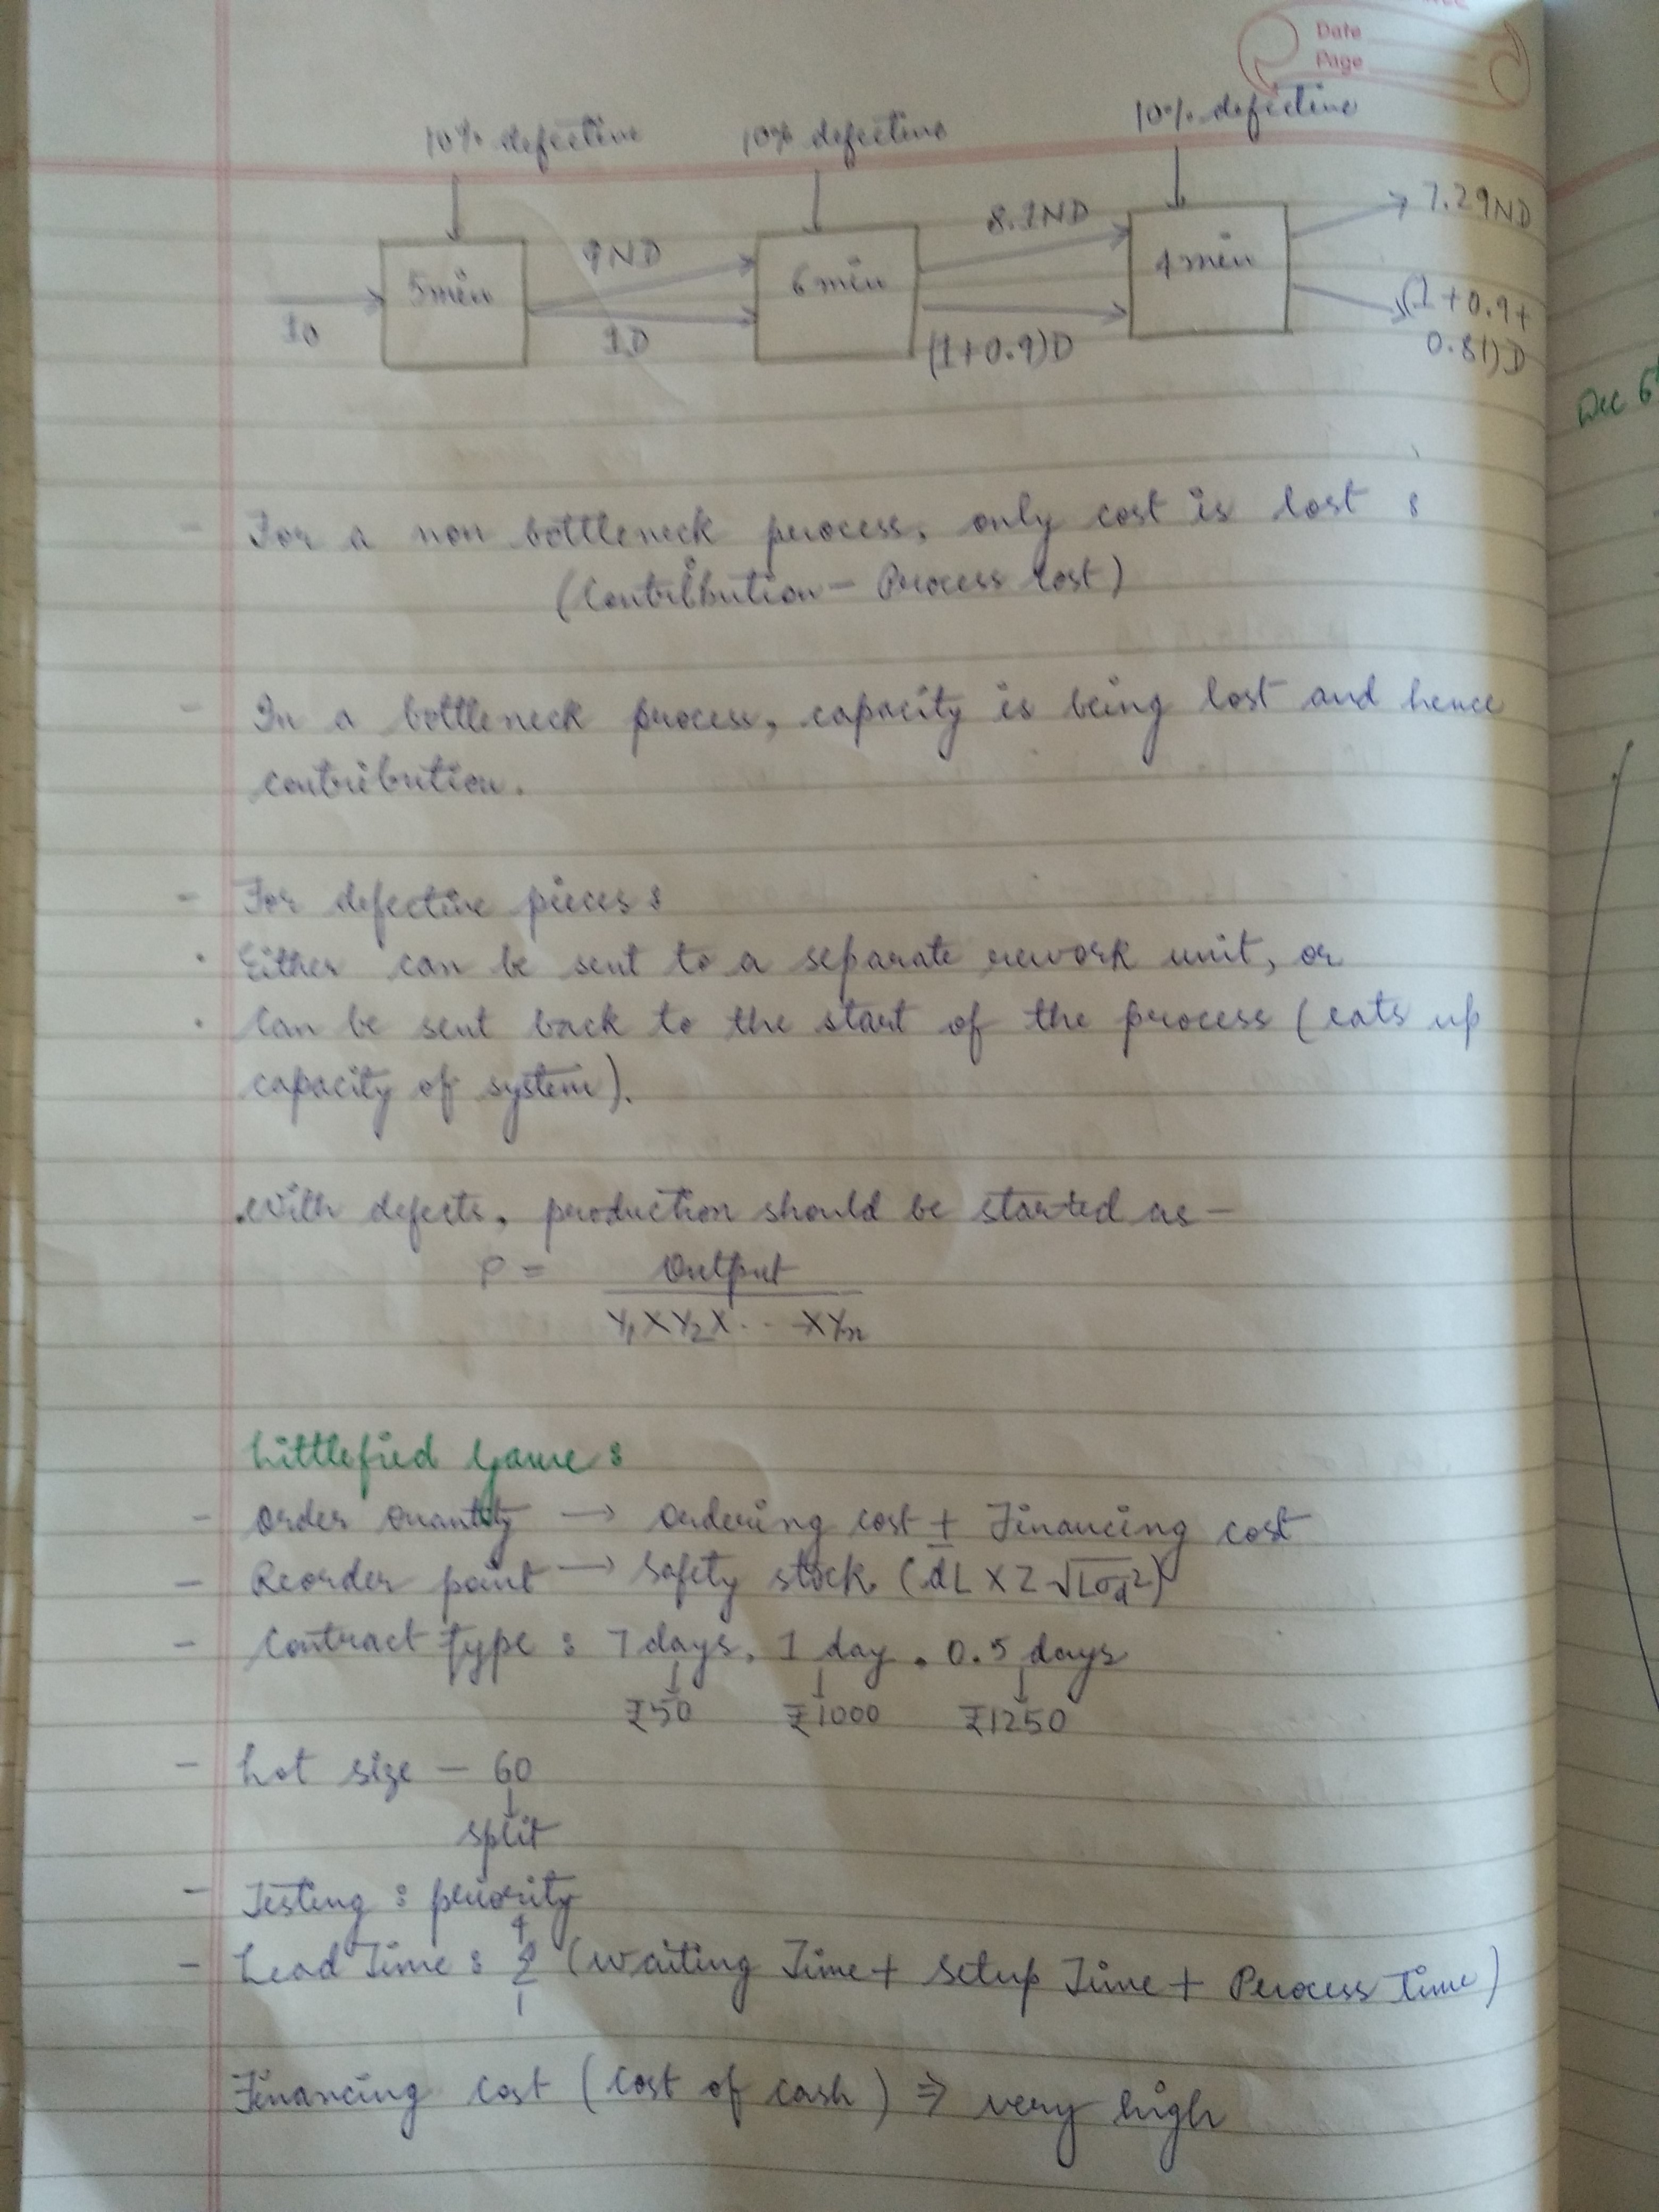 Date
Page
10% defective 10% defective 10% defective
5min 6min 4min
10
9ND
1D
8.1ND
(1+0.9)D
7.29ND
(1+0.9+
0.81)D
Dec 6
- For a non bottleneck process, only cost is lost :
(Contribution - Process Cost)
- In a bottleneck process, capacity is being lost and hence
contribution.
- For defective pieces :
· Either can be sent to a separate rework unit, or
· Can be sent back to the start of the process (eats up
capacity of system).
.With defects, production should be started as -
P = Output
Y₁ X Y₂ X ... X Yn
Littlefied Game :
- Order Quantity → Ordering cost + Financing cost
- Reorder point → Safety stock. (d̄L X Z √Lσd²)
- Contract Type : 7 days, 1 day, 0.5 days
₹50 ₹1000 ₹1250
- Lot size - 60
split
- Testing : priority
- Lead Time : Σ (Waiting Time + Setup Time + Process Time)
4
1
Financing cost (cost of cash) ⇒ very high